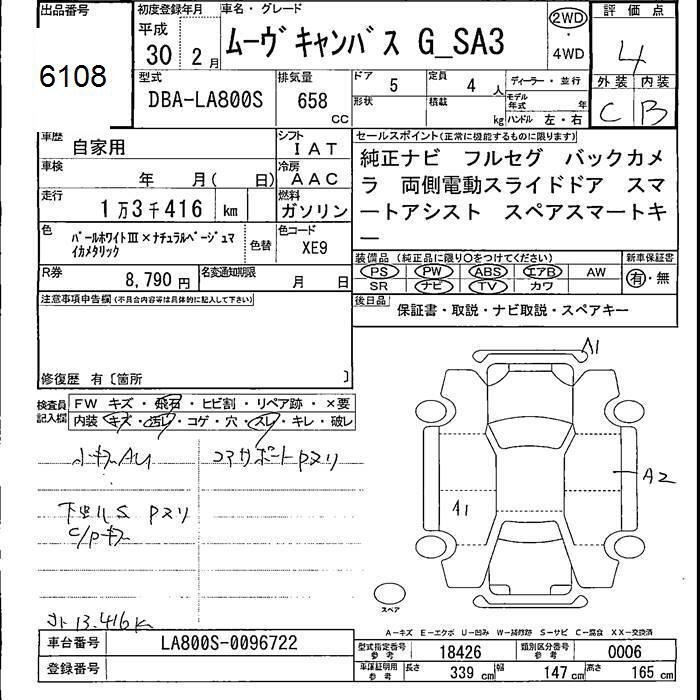 出品番号 初度登録年月 車名・グレード 評価点
6108 平成 30 2月 ムーヴキャンバス G_SA3 2WD・4WD 4
型式 排気量 ドア 5 定員 4人 ディーラー・並行 外装 内装
DBA-LA800S 658 CC 形状 積載 kg モデル年式 年 ハンドル 左・右 C B
車歴 自家用 シフト IAT セールスポイント(正常に機能するものに限ります)
車検 年 月( 日) 冷房 AAC 純正ナビ フルセグ バックカメ
ラ 両側電動スライドドア スマ
走行 1万3千416 km 燃料 ガソリン ートアシスト スペアスマートキ
ー
色 パールホワイトⅢ×ナチュラルベージュマイカメタリック 色替 色コード XE9
装備品(純正品に限り○をつけてください) 新車保証書
PS PW ABS エアB AW 有・無
R券 8,790円 名変通知期限 月 日 SR ナビ TV カワ
注意事項申告欄(不具合内容等は具体的に記入して下さい) 後日品 保証書・取説・ナビ取説・スペアキー
修復歴 有〔箇所 〕
検査員記入欄 FW キズ・飛石・ヒビ割・リペア跡・×要
内装 キズ・汚れ・コゲ・穴・スレ・キレ・破レ
小キズAU コアサポートPヌリ
下廻りS Pヌリ
C/Pキズ
A1
A2
A1
スペア
メーター13,416K
A-キズ E-エクボ U-凹み W-補修跡 S-サビ C-腐食 XX-交換済
車台番号 LA800S-0096722 型式指定番号 参考 18426 類別区分番号 参考 0006
登録番号 車庫証明用 参考 長さ 339 cm 幅 147 cm 高さ 165 cm